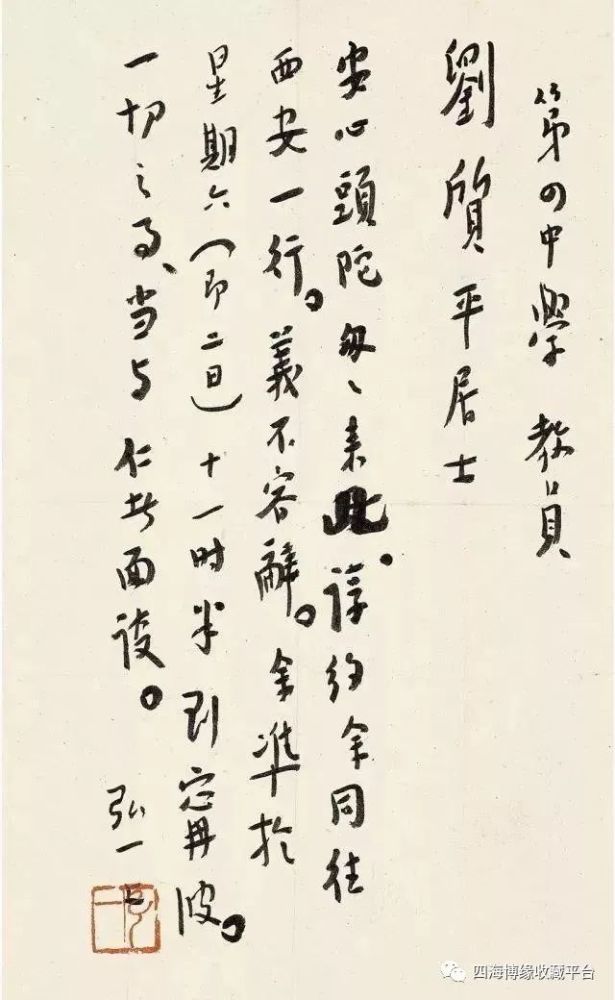 第四中學 教員
劉質平居士
安心頭陀匆、来此。諄約余同往
西安一行。義不容辭。余準於
星期六（即二日）十一时半到寍波。
一切之事、当与 仁者面談。
弘一
四海博缘收藏平台